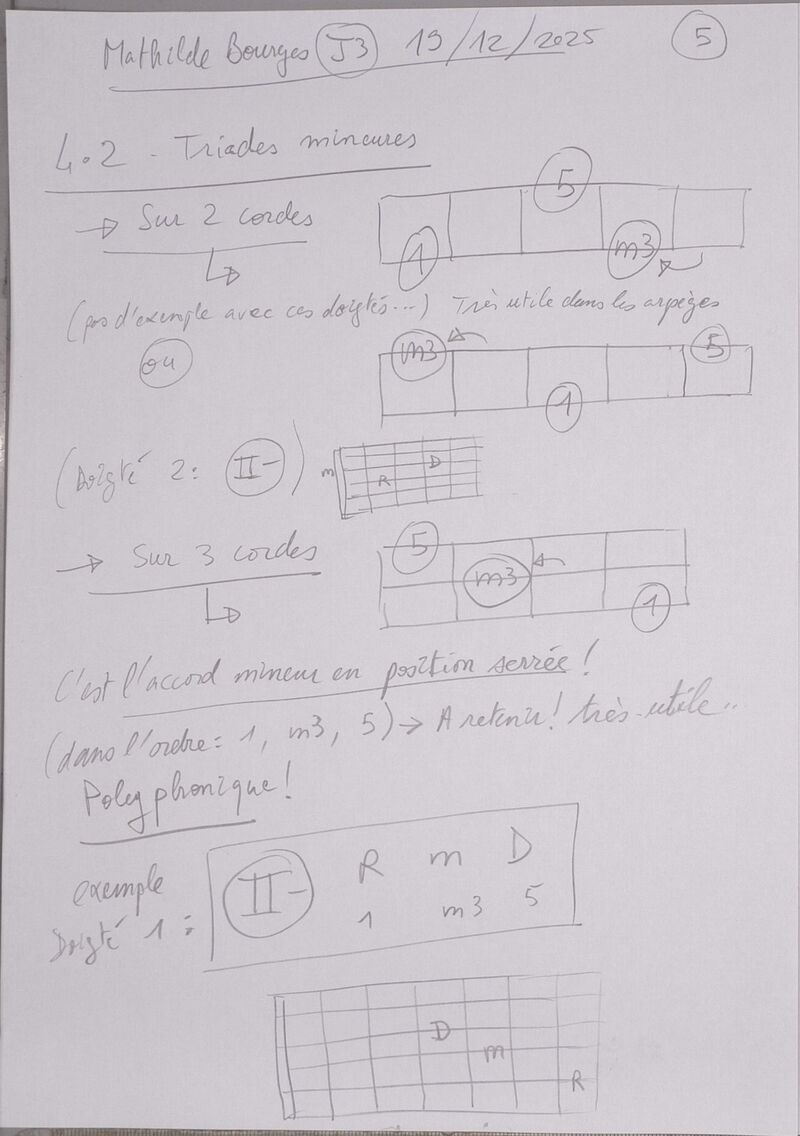 Mathilde Bourges J3 19/12/2025 5
4.2 - Triades mineures
→ Sur 2 cordes
5
1 m3
(pas d'exemple avec ces doigtés...) Très utile dans les arpèges
ou
m3 5
1
(Doigté 2: II-)
m R D
→ Sur 3 cordes
5
m3
1
C'est l'accord mineur en position serrée!
(dans l'ordre: 1, m3, 5) → A retenir! très utile..
Polyphonique!
exemple
Doigté 1:
II- R m D
1 m3 5
D
m
R